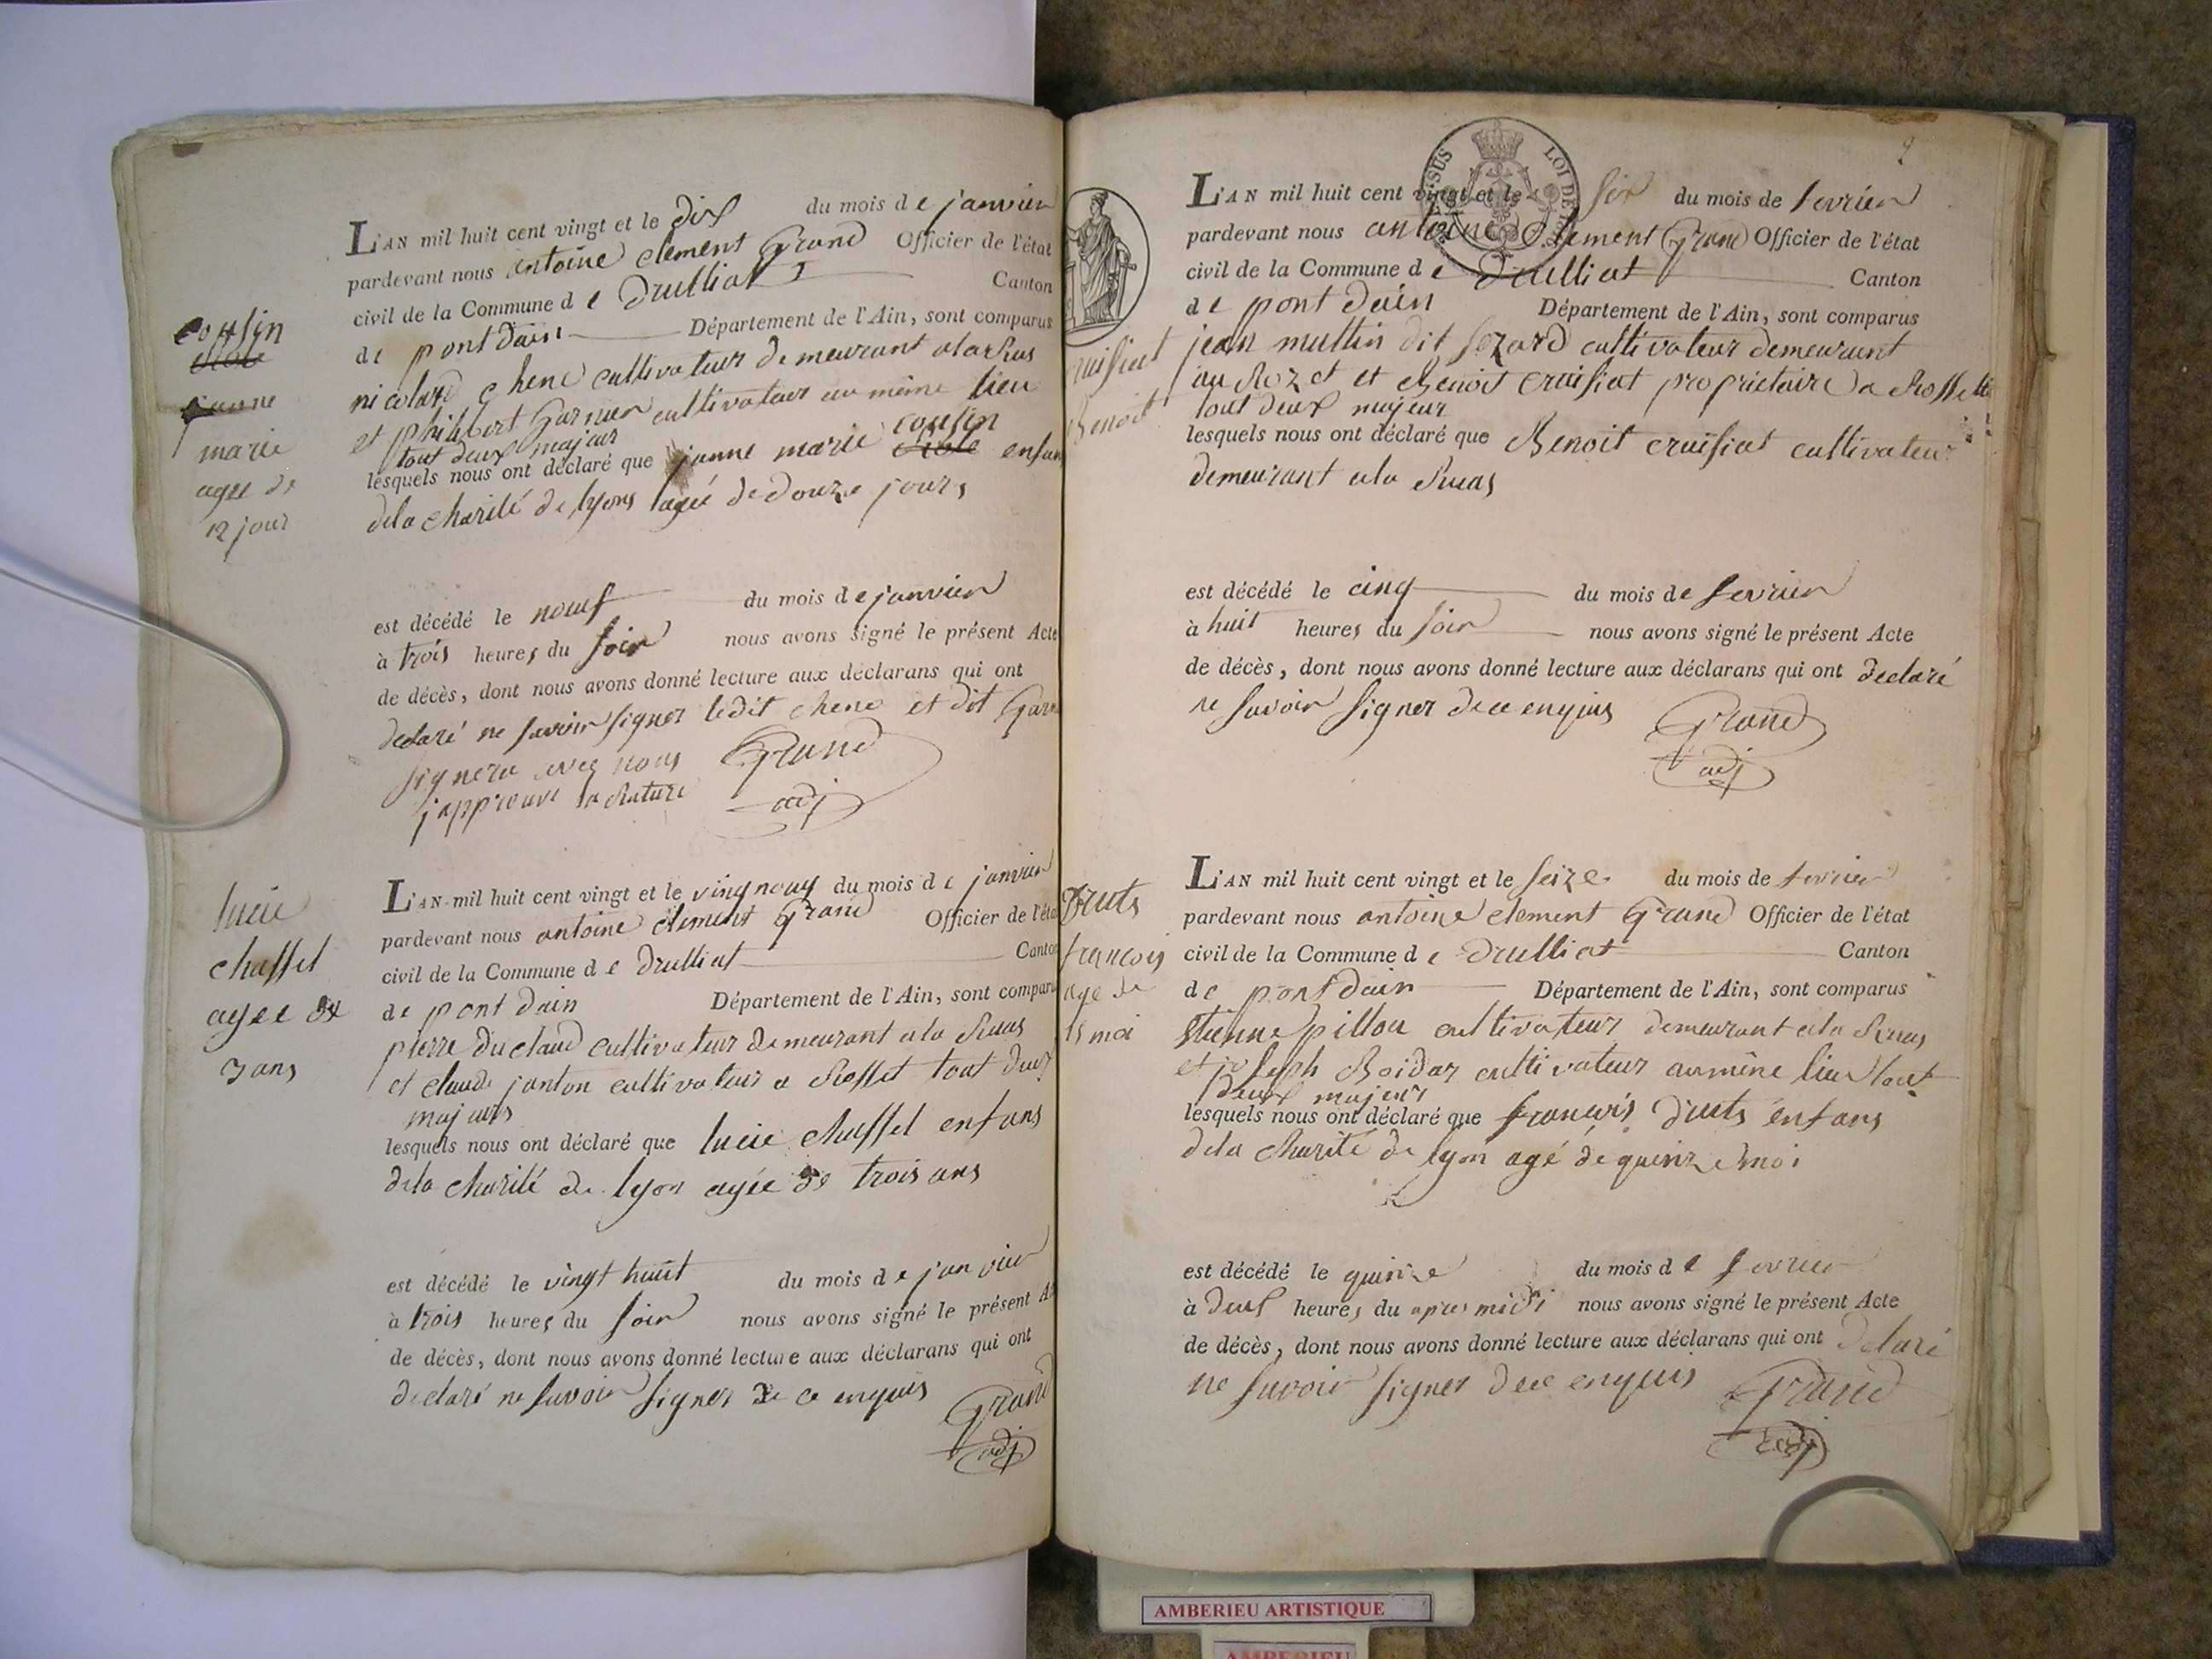 cousin
jeanne
marie
agee de
12 jour
L'AN mil huit cent vingt et le dix du mois de janvier
pardevant nous antoine clement Grand Officier de l'état
civil de la Commune de Druilliat Canton
de pont dain Département de l'Ain, sont comparus
nicolard chene cultivateur demeurant
et philibert Garnier cultivateur au même lieu
tout deux majeur cousin
lesquels nous ont déclaré que janne marie enfan
dela charité de lyons agée de douze jours
est décédé le neuf du mois de janvier
à trois heures du soir nous avons signé le présent Acte
de décès, dont nous avons donné lecture aux déclarans qui ont
declaré ne savoir signer ledit chene et dit Garn
signera avec nous Grand
japprouve la rature adj
lucie
chassel
agee de
3 ans
L'AN mil huit cent vingt et le vingneuf du mois de janvier
pardevant nous antoine clement Grand Officier de l'état
civil de la Commune de Druilliat Canton
de pont dain Département de l'Ain, sont comparu
pierre duclaud cultivateur demeurant ala Ruas
et claude janton cultivateur a Rosset tout deux
majeurs
lesquels nous ont déclaré que lucie chassel enfans
dela charité de lyon agée de trois ans
est décédé le vingt huit du mois de janvier
à trois heures du soir nous avons signé le présent A
de décès, dont nous avons donné lecture aux déclarans qui ont
declaré ne savoir signer de ce enquis Grand
adj
2
SUS LOI DE
L'AN mil huit cent vingt et le six du mois de fevrier
pardevant nous antoine clement Grand Officier de l'état
civil de la Commune de Druilliat Canton
de pont dain Département de l'Ain, sont comparus
ruisiat
Benoit
jean multin dit cultivateur demeurant
au Rozet et Benoit cruisiat proprietaire a
tout deux majeur
lesquels nous ont déclaré que Benoit cruisiat cultivateur
demeurant ala Ruas
est décédé le cinq du mois de fevrier
à huit heures du soir nous avons signé le présent Acte
de décès, dont nous avons donné lecture aux déclarans qui ont declaré
ne savoir signer dece enquis Grand
adj
Druts
francois
age de
15 moi
L'AN mil huit cent vingt et le seize du mois de fevrier
pardevant nous antoine clement Grand Officier de l'état
civil de la Commune de Druilliat Canton
de pont dain Département de l'Ain, sont comparus
Etienne pillou cultivateur demeurant ala Ruas
et joseph Boidar cultivateur aumême lieu tout
deux majeur
lesquels nous ont déclaré que francois druts enfans
dela charité de lyon agé de quinze moi
est décédé le quinze du mois de fevrier
à deux heures du apres midi nous avons signé le présent Acte
de décès, dont nous avons donné lecture aux déclarans qui ont declaré
ne savoir signer dece enquis Grand
adj
AMBERIEU ARTISTIQUE
AMBERIEU